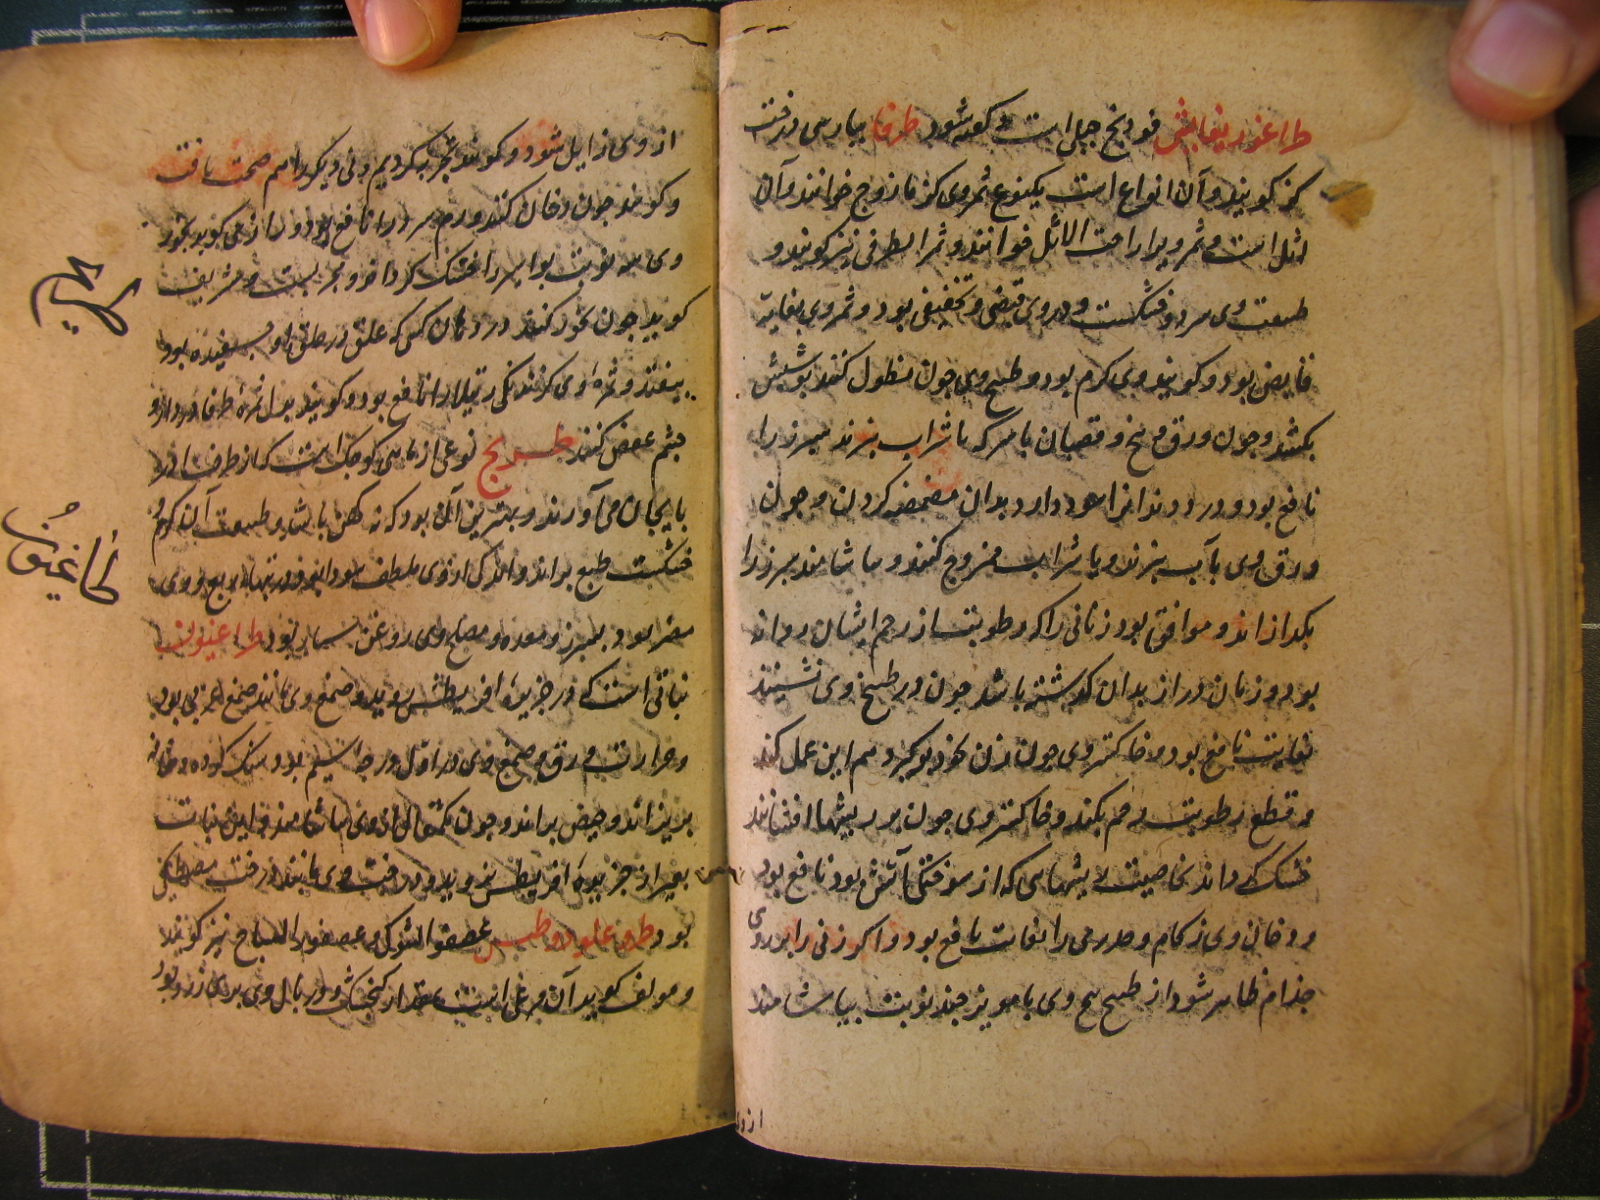 طراغوریغانش فودنج جبل است و کفته شود طرفا بپارسی درخت
کز کویند و آن انواع است یکنوع ثمر وی کزمازوج خوانند و آن
اثل است و ثمر ویرا حب الاثل خوانند و ثمرة الطرفی نیز کویند و
طبیعت وی سرد و خشکست و در وی قبضی و تخفیفی بود و ثمر وی بغایت
قابض بود و کویند وی کرم بود و طبیخ وی چون منطول کنند بر شپش
بکشد و چون ورق و بیخ و قضبان با سرکه یا شراب بزند سپرز را
نافع بود و درد دندانرا سود دارد بدان مضمضه کردن و چون
ورق وی بآب بپزند و با شراب ممزوج کنند و بیاشامند سپرز را
بکدازاند و موافق بود زنانی را که رطوبت از رحم ایشان روانه
بود و زمان دراز بدان کذشته باشد چون در طبیخ وی نشینند
بغایت نافع بود و خاکستر وی چون زن بخود برکیرد هم این عمل کند
و قطع رطوبت رحم بکند و خاکستر وی چون بر ریشها افشانند
خشک کرداند بخاصیت ریشهایی که از سوختکی آتش بود نافع بود
و دخان وی زکام و جدری را بغایت نافع بود و اکر زنی را بر روی
جذام ظاهر شود از طبیخ بیخ وی با مویز چند نوبت بیاشامند
از وی
از وی زایل شود و کویند تجربه کردیم و زنی دیکر را هم صحت یافت
و کویند چون دخان کنند ورم سرد را نافع بود و رازی کوید بخور
وی سه نوبت بواسیر را خشک کرداند و مجربست و شریف
کوید چون بخور کنند در دهان کسی که علق در حلق او چسفیده بود
بیفتد و ثمره وی کزندکی رتیلا را نافع بود و کویند بدل ثمره طرفا در دارو
چشم عفص کنند طریخ نوعی از ماهی کوچک است که از طرف آذر
بایجان می آورند و بهترین آن بود که نه کهن باشد و طبیعت آن کرم و
خشکست طبع براند و اندکی از وی ملطف بود
مضر بود بسپرز و معده و مصلح وی روغن بسیار بود طراغیون
نباتی است که در جزیره اقریطش روید و صمغ وی مانند صمغ عربی بود
و حرارت ورق و صمغ وی در اول درجه سیم بود سنک کرده و مثانه
بریزاند و حیض براند و چون یکمثقال از وی بیاشامند و این نبات
بغیر از جزیره اقریطش نروید و درخت وی مانند درخت مصطکی
بود طرغلودوطیس عصفور الشوک و عصفور السیاج نیز کویند
و مولف کوید آن مرغی است بمقدار کنجشک و در بال وی پری زرد بود
طریخ
طراغیون